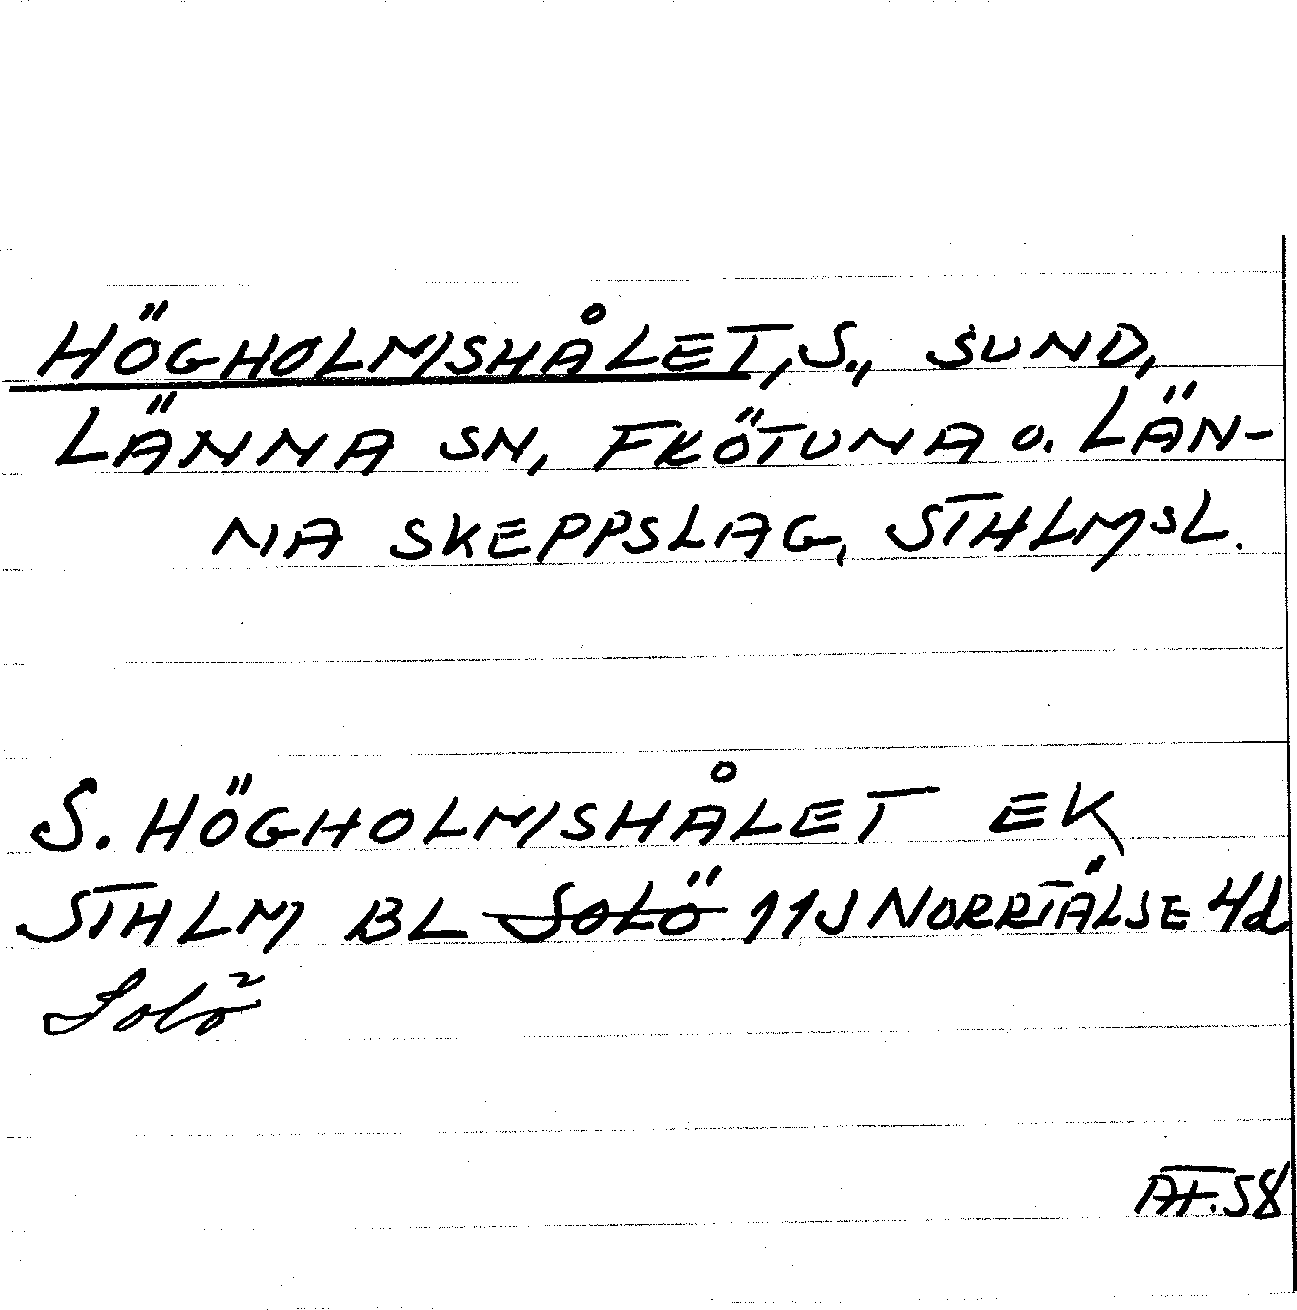 HÖGHOLMSHÅLET, S., SUND,
LÄNNA SN, FRÖTUNA O. LÄN-
NA SKEPPSLAG, STHLMSL.
S. HÖGHOLMSHÅLET EK
STHLM BL SOLÖ 11J NORRTÄLJE 4d
Solö
58